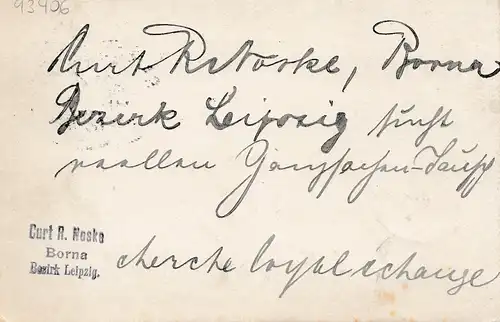 93906
Curt R. Noske, Borna
Bezirk Leipzig sucht
reellen Ganzsachen-Tausch
Curt R. Noske
Borna
Bezirk Leipzig.
cherche loyal echange